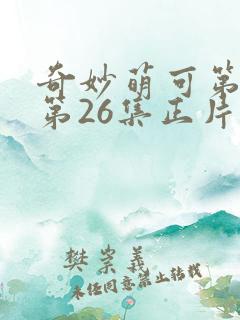 奇妙萌可第
第26集正片
樊崇義
未经同意禁止转载